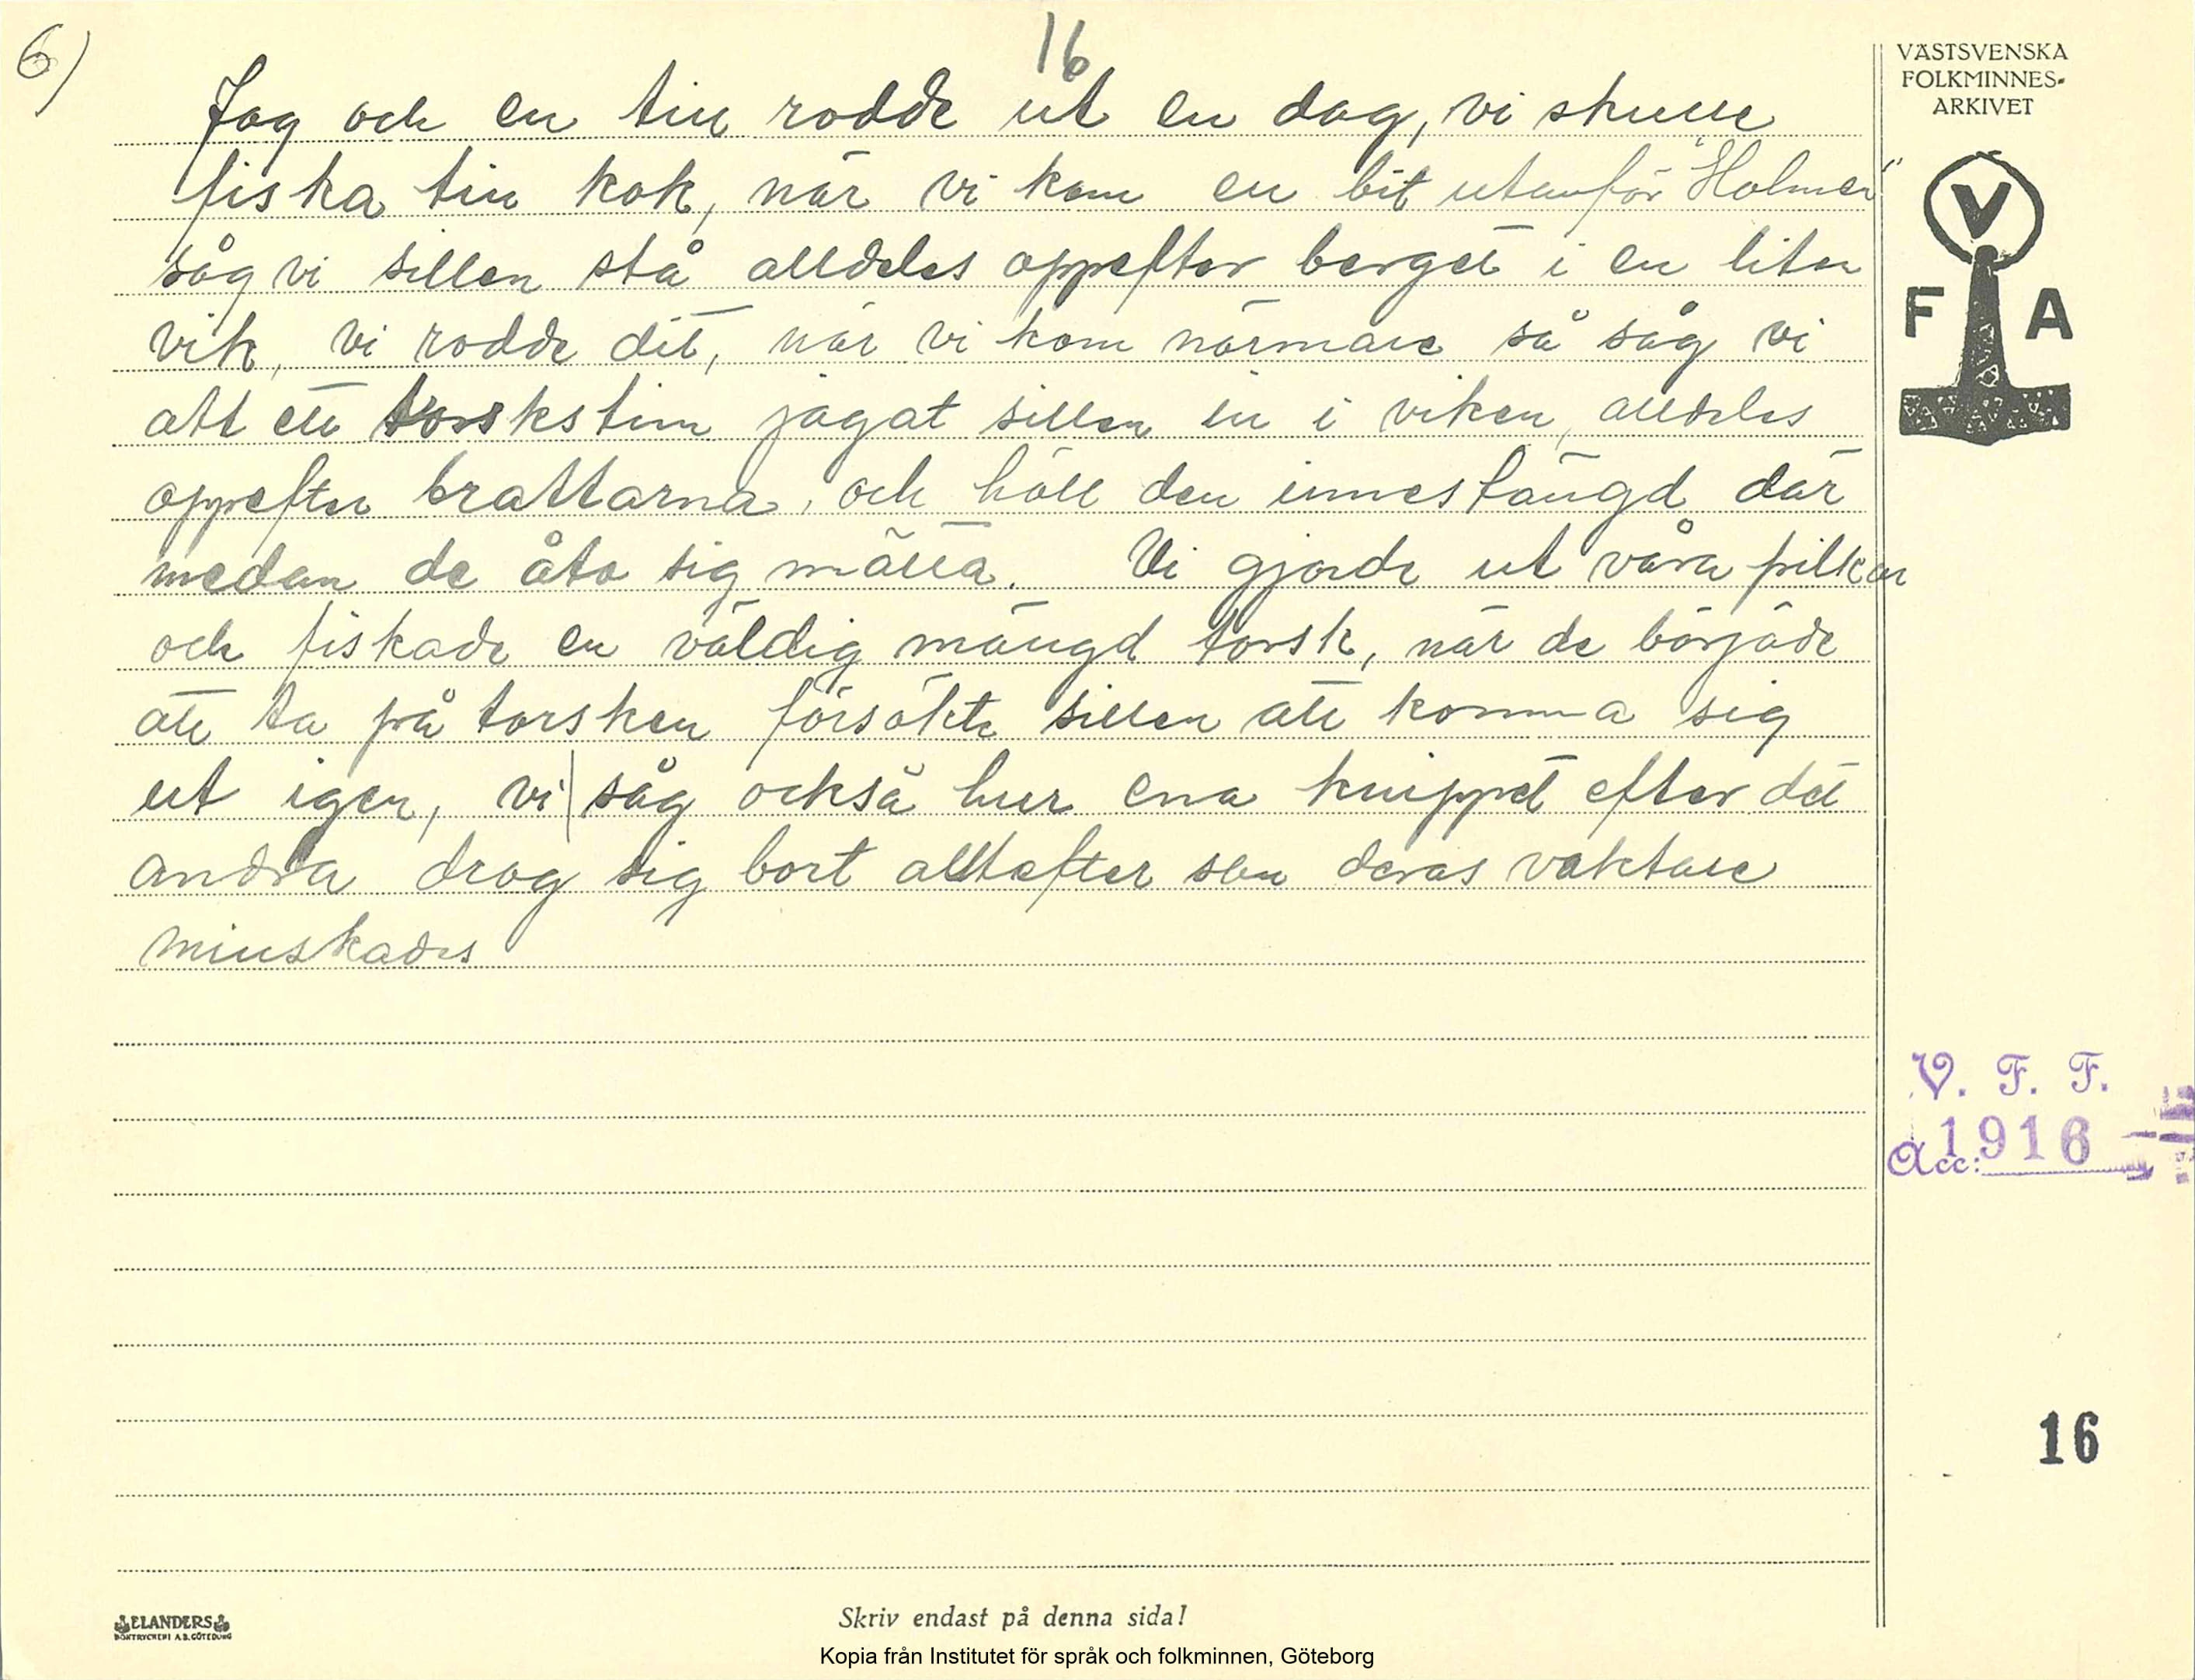 6)
16
VÄSTSVENSKA
FOLKMINNES-
ARKIVET
Jag och en till rodde ut en dag, vi skulle
fiska till kok, när vi kom en bit utanför "Holmen"
såg vi sillen stå alldeles oppefter berget i en liten
vik, vi rodde dit, när vi kom närmare så såg vi
att ett torskstim jagat sillen in i viken, alldeles
oppefter brattarna, och höll den innestängd där
medan de åto sig mätta. Vi gjorde ut våra pilkar
och fiskade en väldig mängd torsk, när de började
att ta på torsken försökte sillen att komma sig
ut igen, vi såg också hur ena knippet efter det
andra drog sig bort alltefter som deras väktare
minskades
V
F A
V. F. F.
Acc: 1916
16
ELANDERS
BOKTRYCKERI A.B. GÖTEBORG
Skriv endast på denna sida!
Kopia från Institutet för språk och folkminnen, Göteborg